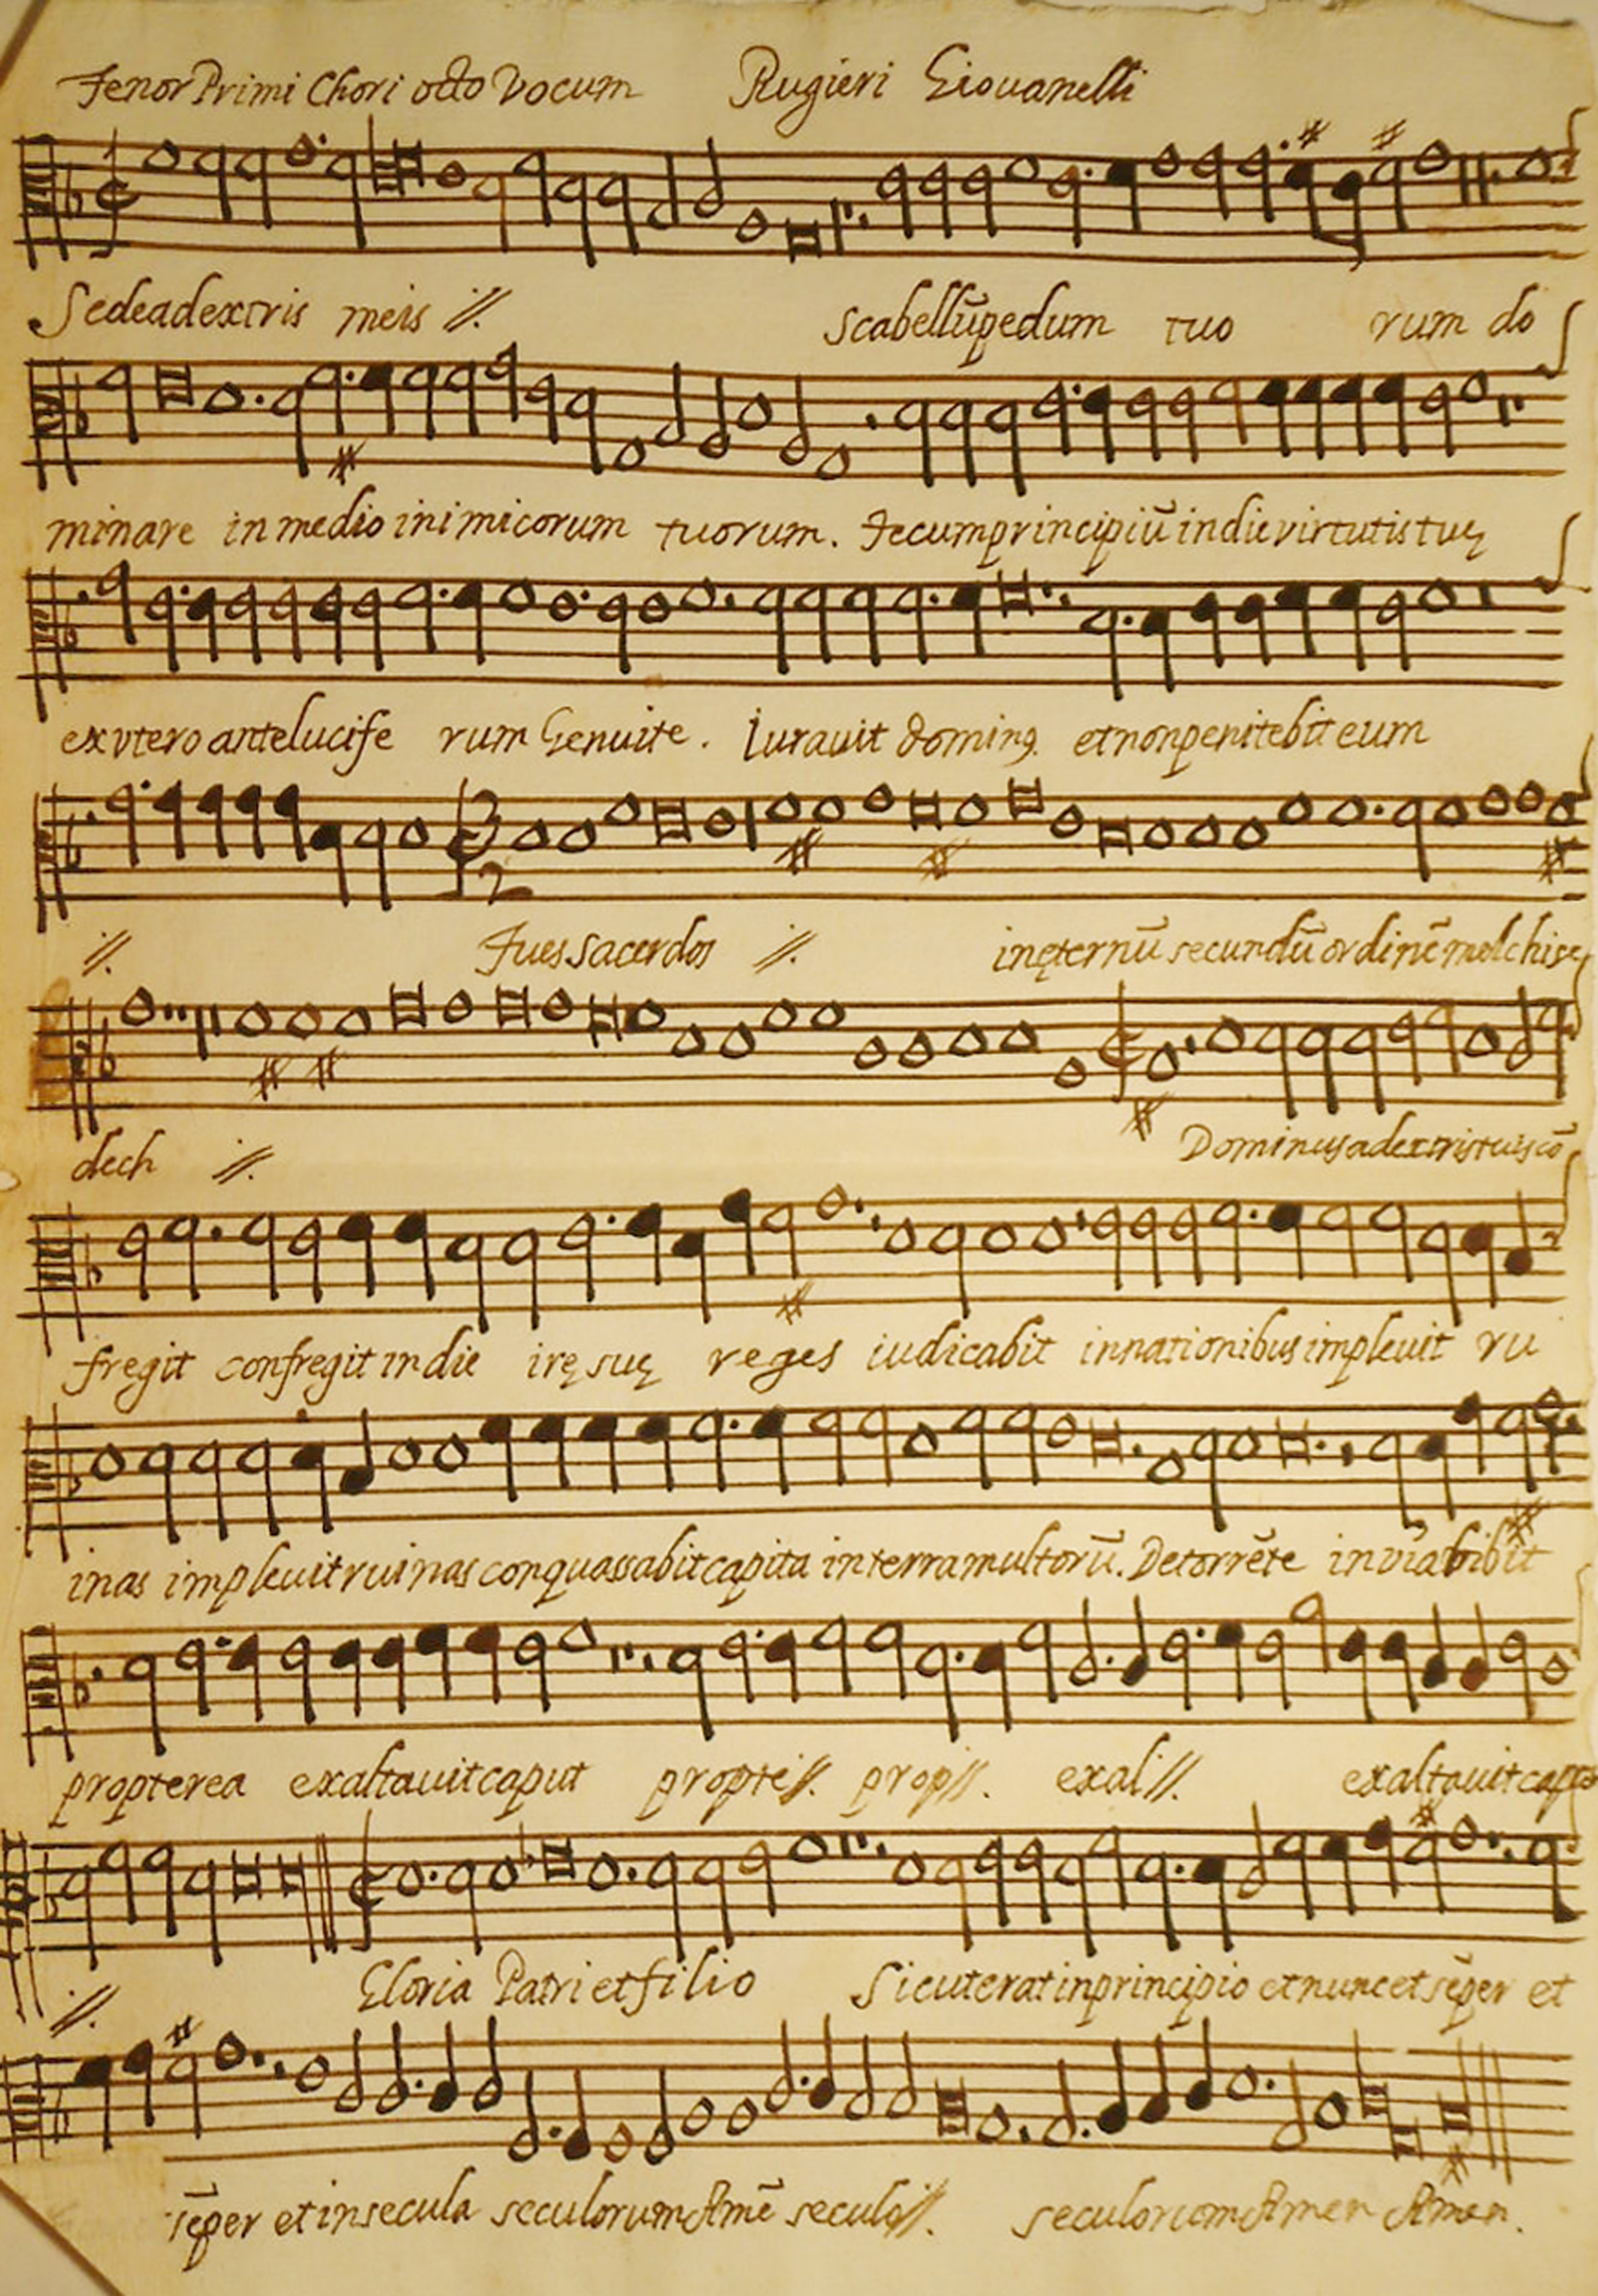 Tenor Primi Chori octo Vocum Rugieri Giouanelli
Sedeadextris meis //. scabellū pedum tuo rum do
minare in medio inimicorum tuorum. Tecum principiū in die virtutis tuę
ex vtero ante lucife rum Genui te. Iurauit doming. et non penitebit eum
//. Tu es sacerdos //. in ęternū secundū ordinē melchise
dech //. Dominus adextris tuis cō
fregit confregit in die irę suę reges iudicabit in nationibus impleuit ru
inas impleuit ruinas conquassabit capita in terra multorū. De torrēte in via bibit
propterea exaltauit caput propte//. prop//. exal//. exaltauit caput
//. Gloria Patri et filio Sicut erat in principio et nunc et sēper et
sēper et in secula seculorum Amē seculo//. seculorum Amen Amen.